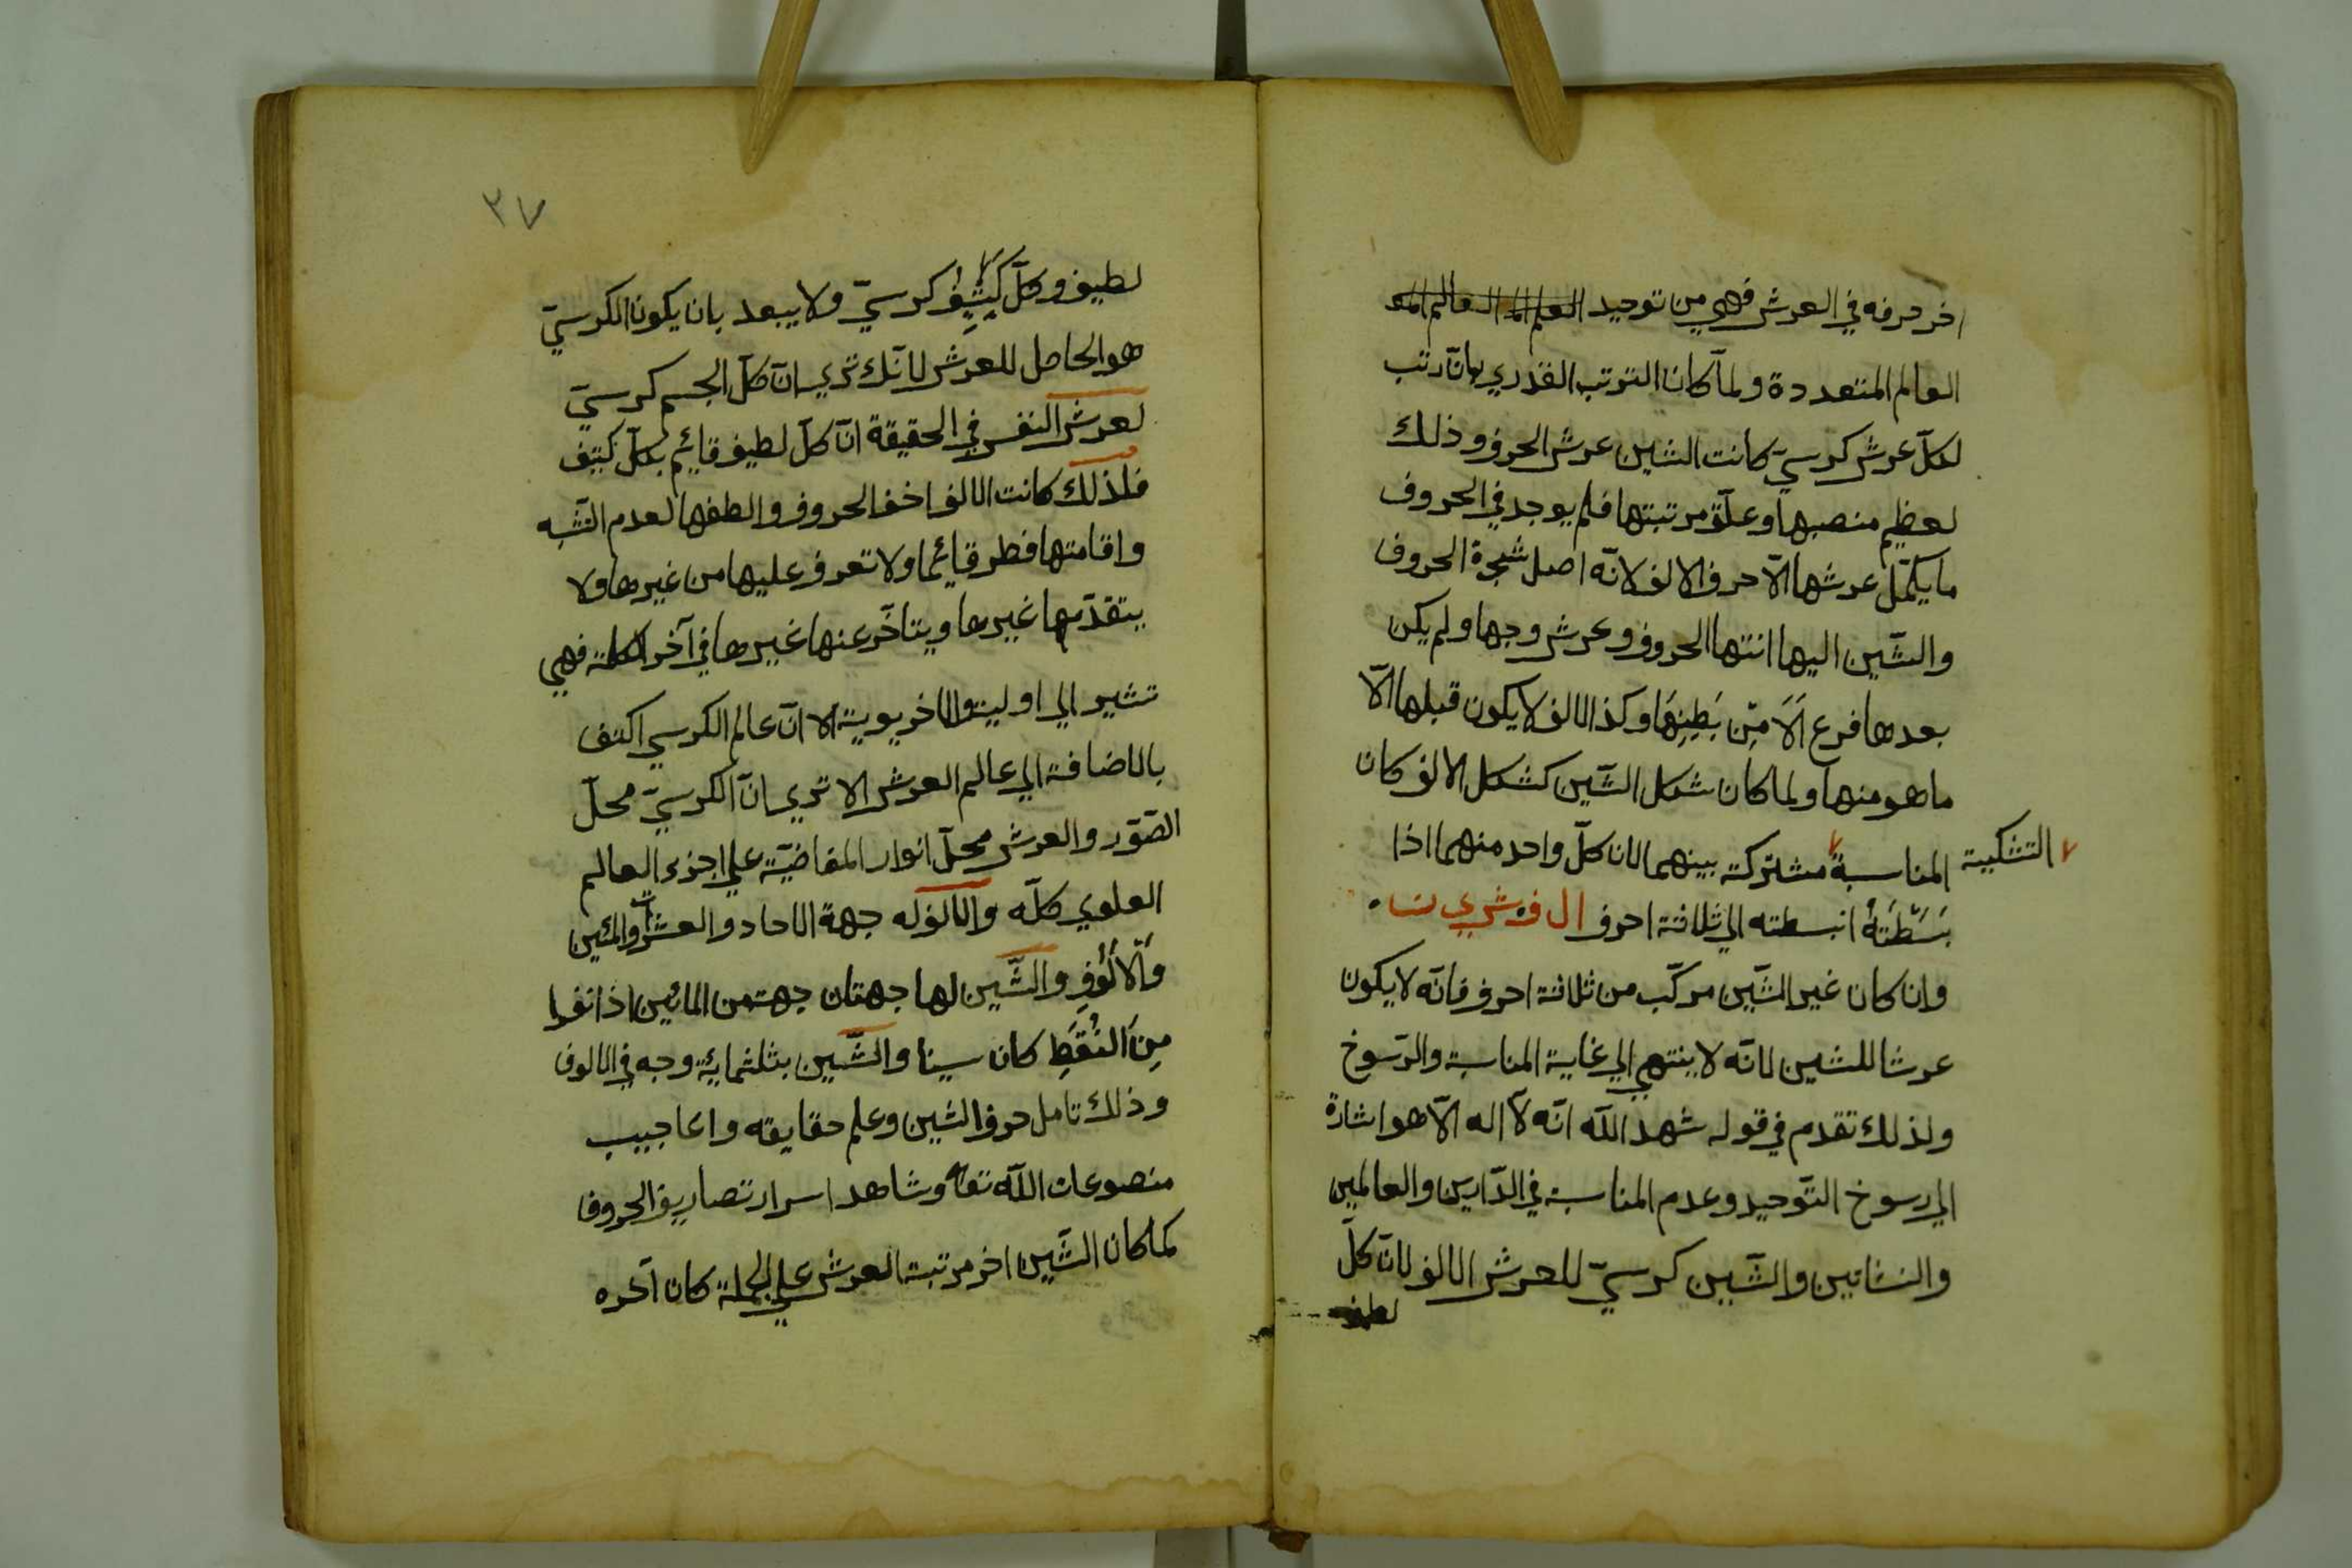 اخر حرفه في العرش فهي من توحيد
العالم المتعددة ولمّا كان الترتب القدري بانّ رتب
لكلّ عرش كرسيّ كانت الشين عرش الحروف وذلك
لعظيم منصبها وعلوّ مرتبتها فلم يوجد في الحروف
ما يكمّل عرشها الّا حرف الالف لانّه اصل شجرة الحروف
والشّين اليها انتها الحروف وعرش وجها ولم يكن
بعدها فرع اَلَا مِّن بَطِنِهَا وكذا الالف لا يكون قبلها الّا
ما هو منها ولما كان شكل الشّين كشكل الالف كان
التشكية
المناسبة مشتركة بينهما لان كلّ واحد منهما اذا
بَسَّطْتَهُ انبسطته الي ثلاثة احرف ال ف ش ي ن
وان كان غير الشّين مركّب من ثلاثة احرف فانّه لا يكون
عرشا للشين لانّه لا ينتهي الي غاية المناسبة والرّسوخ
ولذلك تقدم في قوله شهد اللّه انّه لا اله الّا هو اشارة
الي رسوخ التّوحيد وعدم المناسبة في الدّارين والعالمين
والنشاتين والشّين كرسيّ للعرش الالف لانّ كلّ
لطيف
٣٧
لطيف وكلّ كَثِيفٍ كرسيّ ولا يبعد بان يكون الكرسيّ
هو الحامل للعرش لانّك تري انّ كلّ الجسم كرسيّ
لعرش النفس في الحقيقة انّ كلّ لطيف قايم بكلّ كثيف
فلذلك كانت الالف اخف الحروف والطفها لعدم التّشبه
واقامتها فطر قائما ولا تعرف عليها من غيرها ولا
يتقدّمها غيرها ويتاخّر عنها غيرها في آخر الكلمة فهي
تشير الي اوليته والاخريوية الا انّ عالم الكرسي اكثف
بالاضافة الي عالم العرش الا تري انّ الكرسيّ محلّ
الصّوّر والعرش محلّ انوار المفاضيّة علي اجزء العالم
العلوي كلّه والالف له جهة الاحاد والعشرات والمئين
وَالْاُلُوْفِ والشّين لها جهتان جهة من المائين اذا نفوا
مِنَ النُّقَطِ كان سينا والشّين بثلثماية وجه في الالوف
وذلك تامل حرف الشين وعلم حقايقه واعاجيب
منصوعات اللّه تعا وشاهد اسرار تصاريف الحروف
كما كان الشّين اخر مرتبة العرش علي الجملة كان آخره